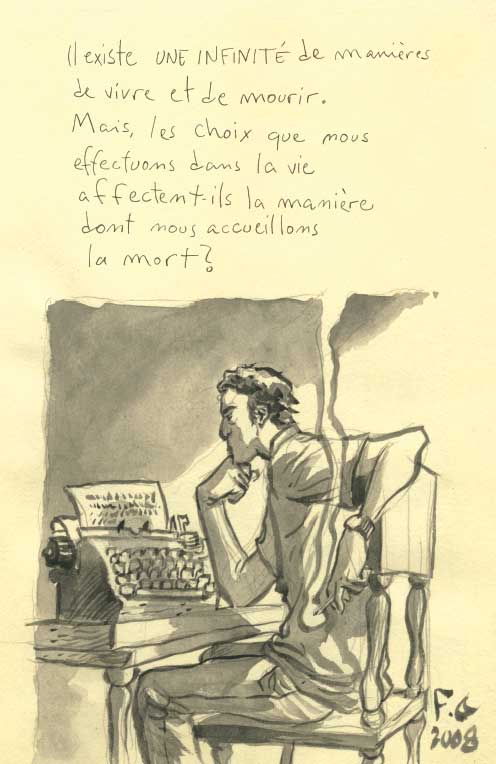 Il existe UNE INFINITÉ de manières
de vivre et de mourir.
Mais, les choix que nous
effectuons dans la vie
affectent-ils la manière
dont nous accueillons
la mort?
F.G
2008